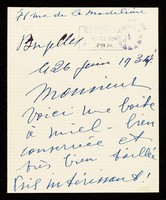 rue de la Madeleine
Bruxelles
le 26 juin 1934
Monsieur
voici une boîte
à miel - bien
conservée et
très bien taillée
Prix intéressant!